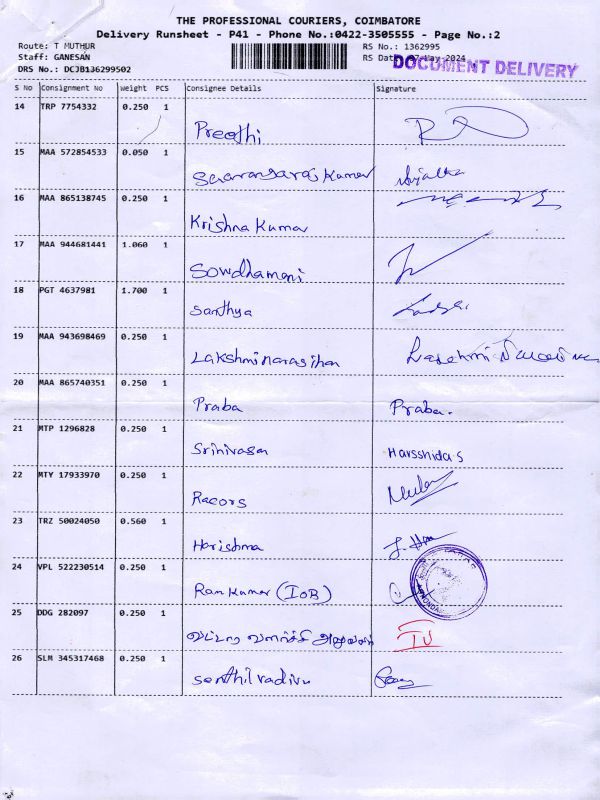 THE PROFESSIONAL COURIERS, COIMBATORE
Delivery Runsheet - P41 - Phone No.:0422-3505555 - Page No.:2
Route: T MUTHUR
RS No.: 1362995
Staff: GANESAN
RS Date
DRS No.: DCJB136299502
DOCUMENT DELIVERY
S No Consignment No Weight PCS Consignee Details Signature
14 TRP 7754332 0.250 1
Preethi
15 MAA 572854533 0.050 1
16 MAA 865138745 0.250 1
Krishna Kumar
17 MAA 944681441 1.060 1
Sowdhamani
18 PGT 4637981 1.700 1
Santhya
19 MAA 943698469 0.250 1
Lakshminarasihan
20 MAA 865740351 0.250 1
Praba Praba.
21 MTP 1296828 0.250 1
Srinivasan Harsshida S
22 MTY 17933970 0.250 1
Racors
23 TRZ 50024050 0.560 1
Harishma
24 VPL 522230514 0.250 1
Ram Kumar (IOB)
25 DDG 282097 0.250 1
வட்டார வளர்ச்சி அலுவலகம்
26 SLM 345317468 0.250 1
Senthilvadivu